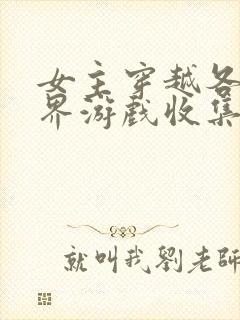 女主穿越各
界游戏收集
就叫我劉老師